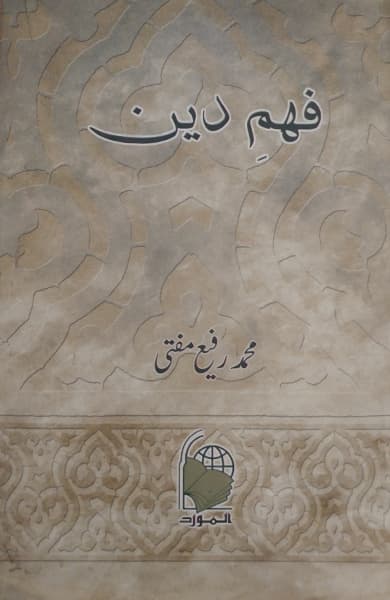 فہمِ دین
محمد رفیع مفتی
المورد